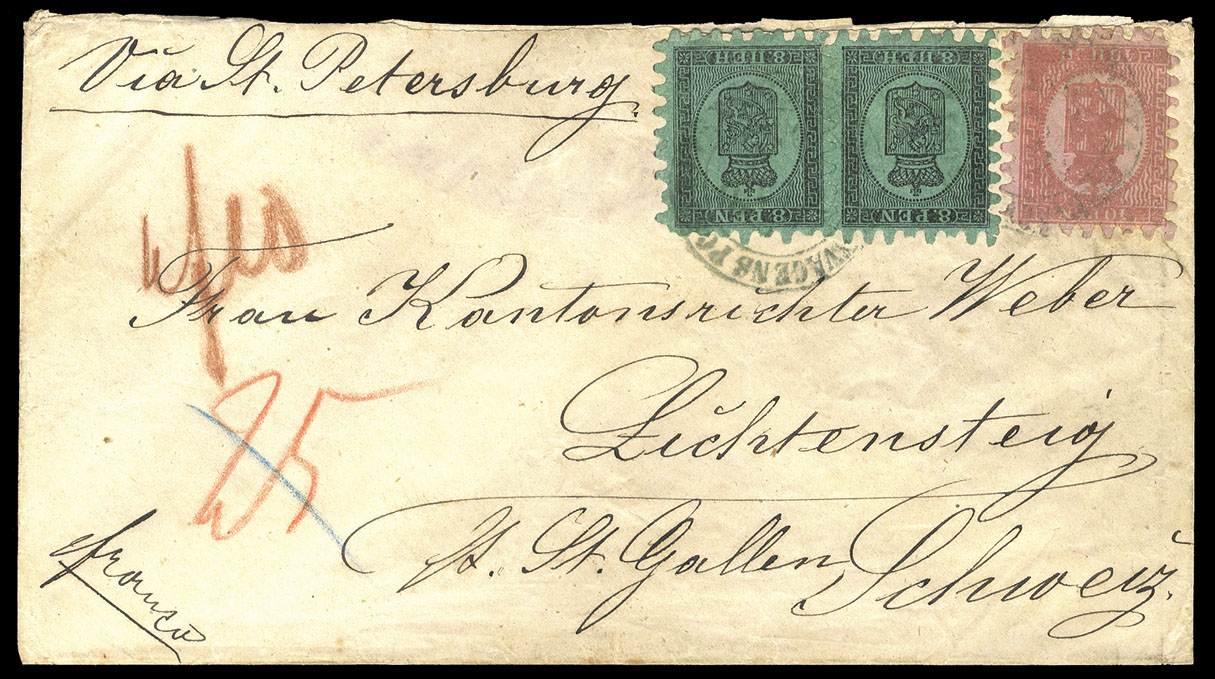 Via St. Petersburg.
8 ПЕН 8 ПЕН
8 PEN 8 PEN 40 PEN
VAGENS PO
Frau Kantonsrichter Weber
Lichtensteig
Kt. St. Gallen Schweiz.
25
franco